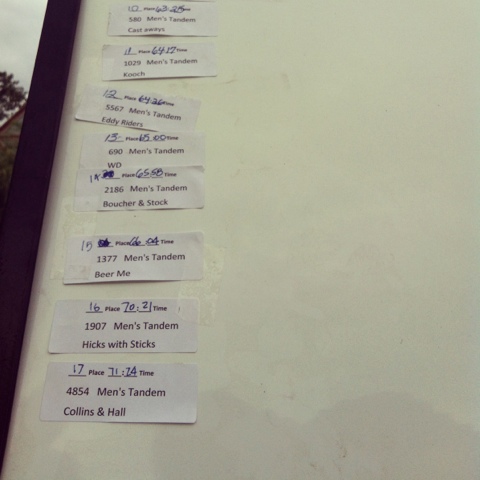 10 Place 63:28 Time
580 Men's Tandem
Cast aways
11 Place 64:17 Time
1029 Men's Tandem
Kooch
12 Place 64:36 Time
5567 Men's Tandem
Eddy Riders
13 Place 65:00 Time
690 Men's Tandem
WD
14 Place 65:58 Time
2186 Men's Tandem
Boucher & Stock
15 Place 66:04 Time
1377 Men's Tandem
Beer Me
16 Place 70:21 Time
1907 Men's Tandem
Hicks with Sticks
17 Place 71:24 Time
4854 Men's Tandem
Collins & Hall